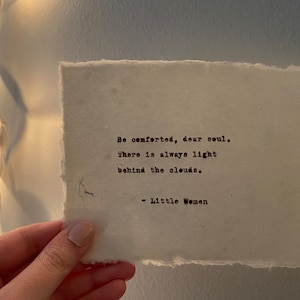 Be comforted, dear soul.
There is always light
behind the clouds.
- Little Women